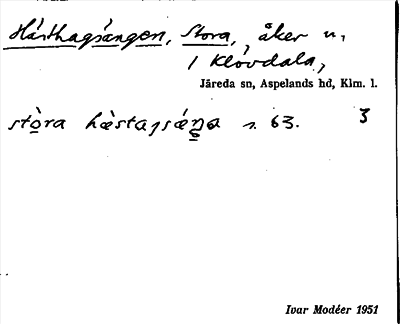 Hästhagsängen, Stora, åker u,
1 Klövdala,
Järeda sn, Aspelands hd, Klm. l.
stòra hæ̀stagsæŋa s. 63. 3
Ivar Modéer 1951